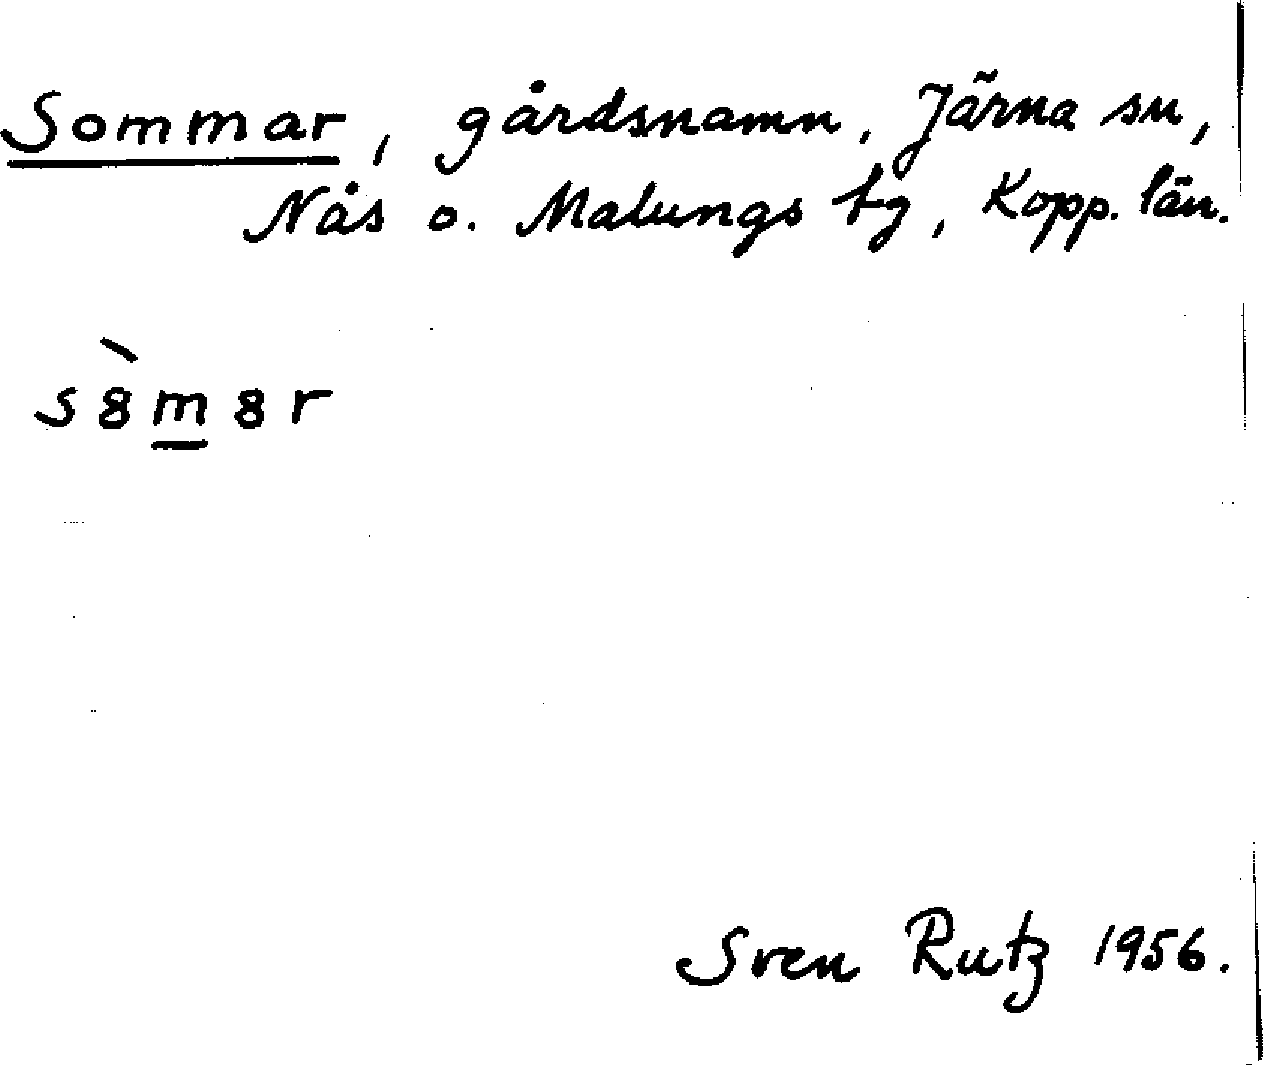 Sommar, gårdsnamn, Järna sn,
Nås o. Malungs tg, Kopp. län.
s8̀m̲8r
Sven Rutz 1956.